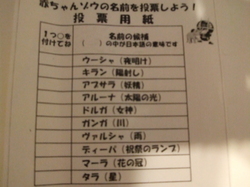 赤ちゃんゾウの名前を投票しよう!
投票用紙
1つ○を
付けてね
名前の候補
( )の中が日本語の意味です
ウーシャ(夜明け)
キラン(陽射し)
アプサラ(妖精)
アルーナ(太陽の光)
ドルガ(女神)
ガンガ(川)
ヴァルシャ(雨)
ディーパ(祝祭のランプ)
マーラ(花の冠)
タラ(星)